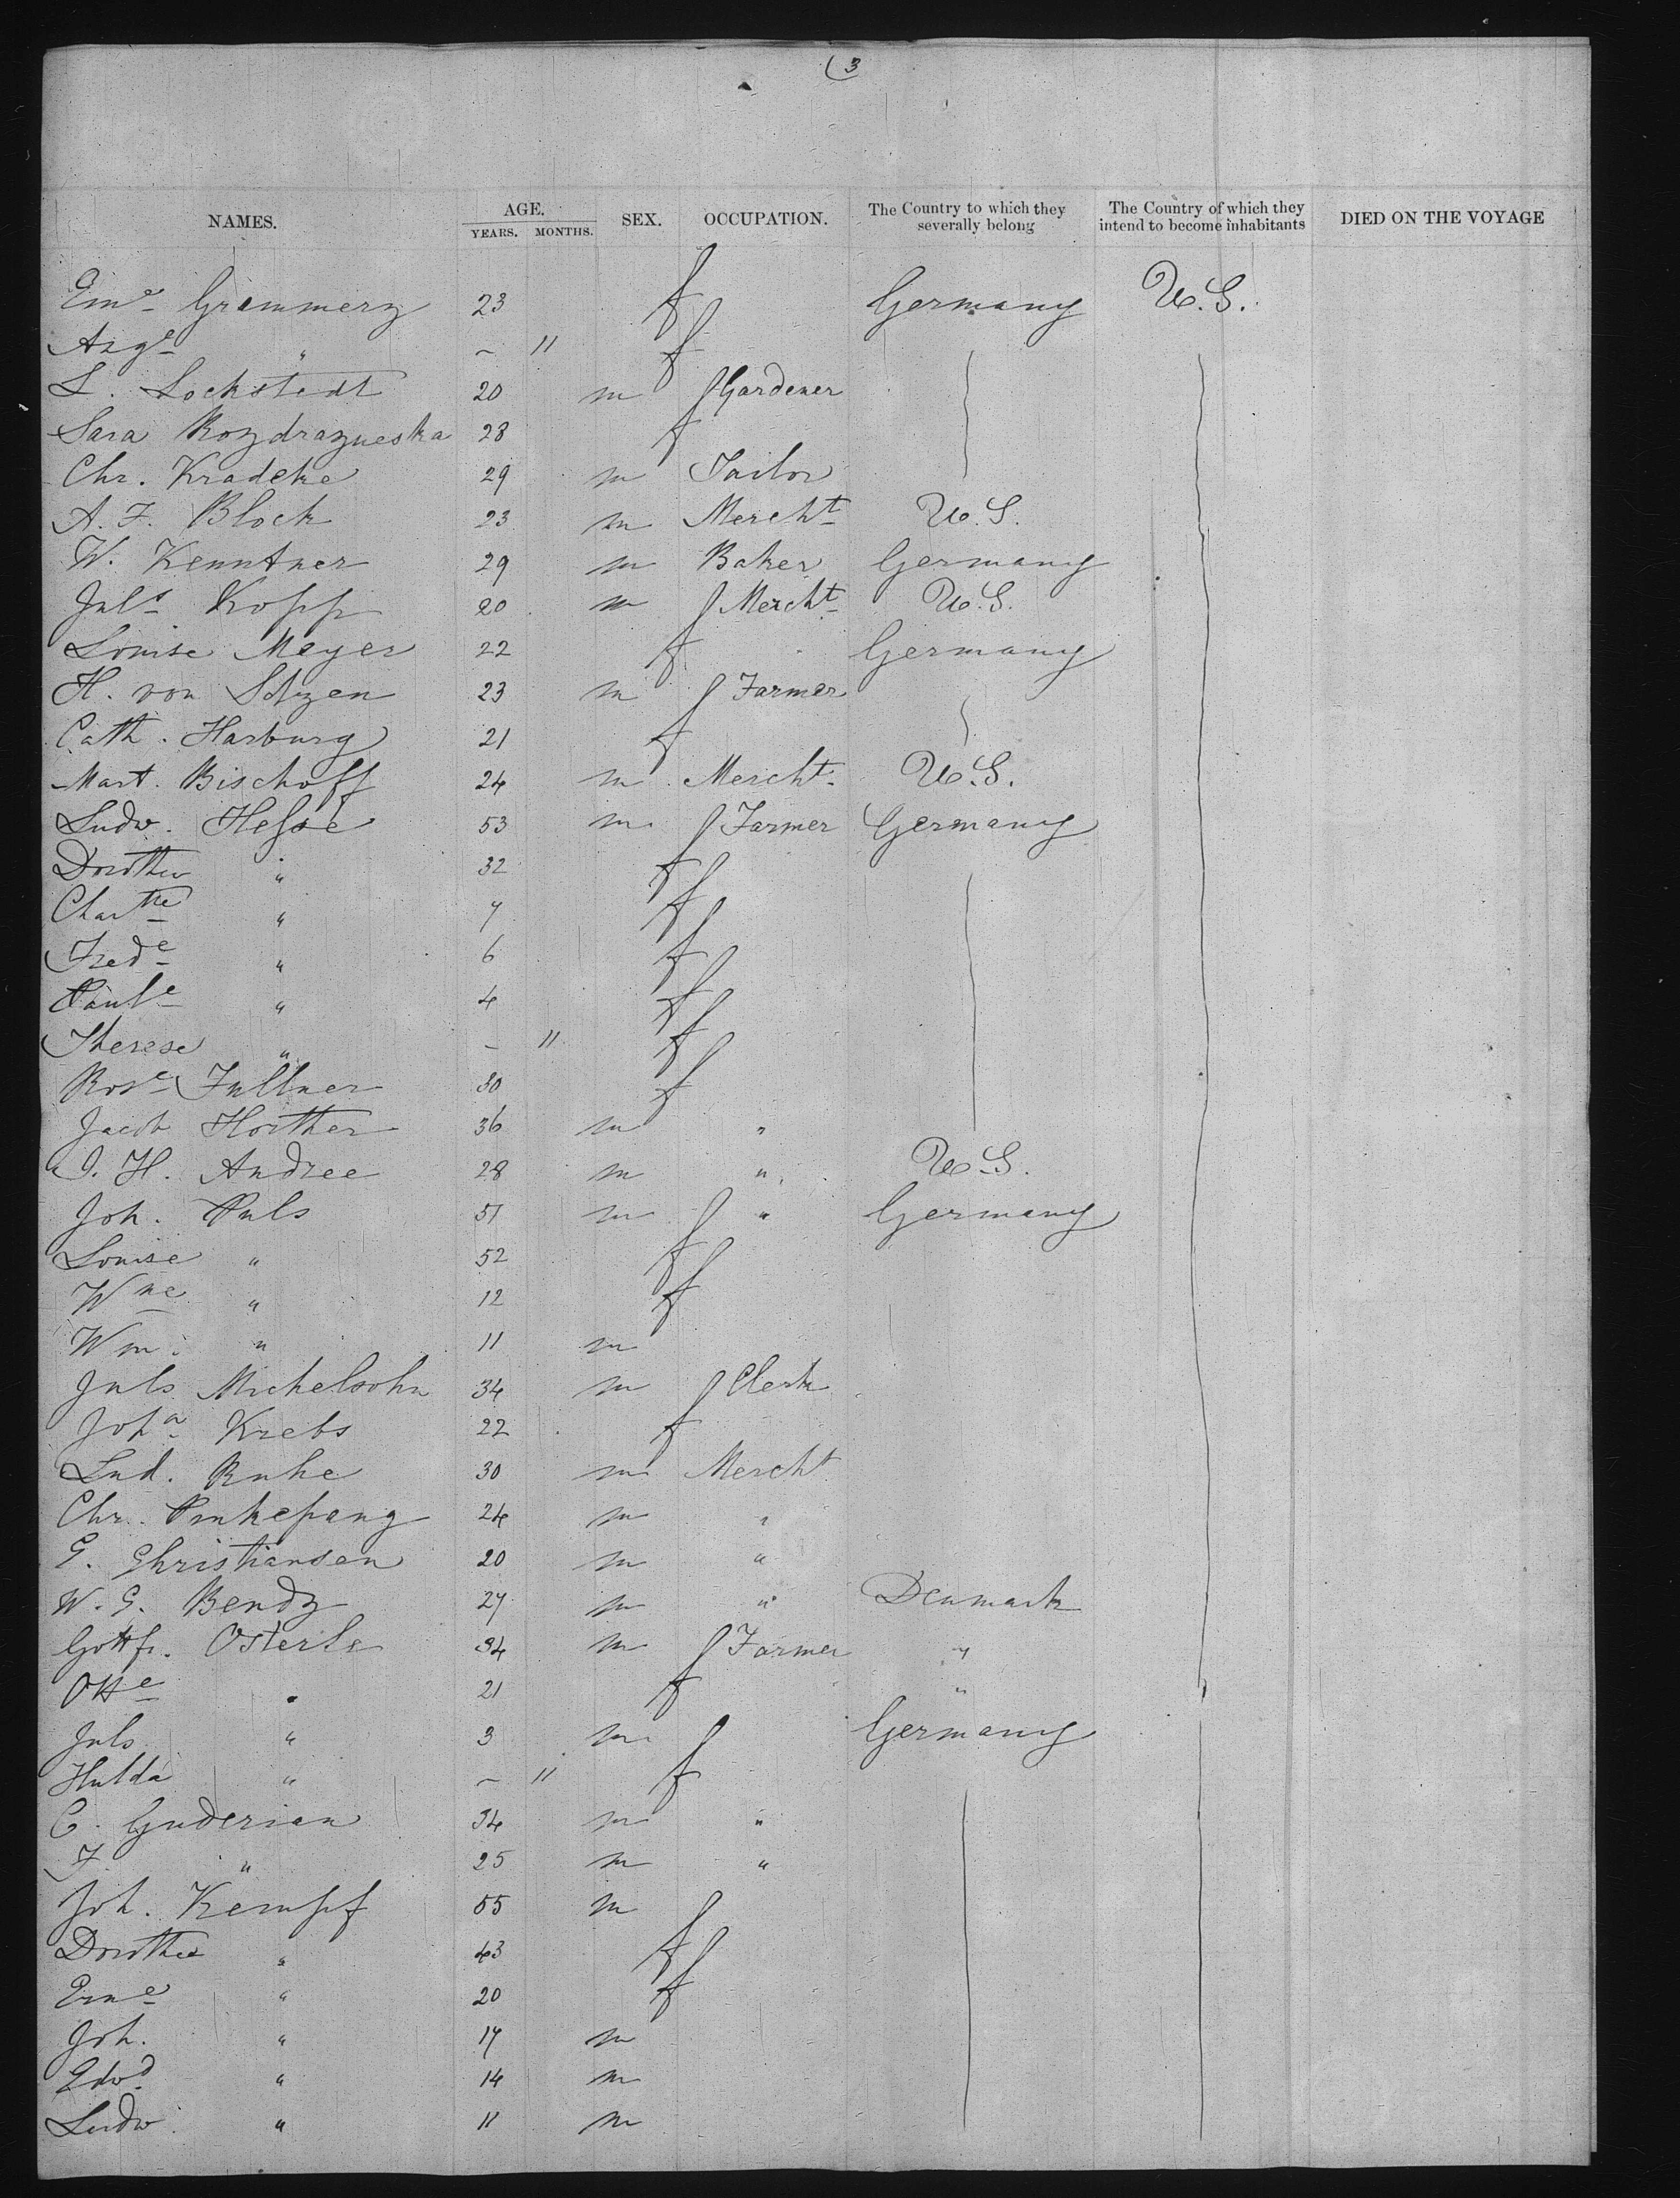 (3
NAMES. AGE. YEARS. MONTHS. SEX. OCCUPATION. The Country to which they severally belong The Country of which they intend to become inhabitants DIED ON THE VOYAGE
Eme Grammerz 23 f Germany U.S.
Auge " – 11 f
L. Lockstedt 20 m Gardener
Sara Rozdrazneska 28 f
Chr. Kradeke 29 m Tailor
A. F. Block 23 m Mercht U.S.
W. Kenntner 29 m Baker Germany
Juls Kopp 20 m Mercht U.S.
Louise Meyer 22 f Germany
H. von 23 m Farmer
Cath. Harburg 21 f
Mart. Bischoff 24 m Mercht U.S.
Ludw. Hesse 53 m Farmer Germany
Dorothea " 32 f
Chartte " 7 f
Frede " 6 f
Paule " 4 f
Therese " – 11 f
Rose Fullner 30 f
Jacob Horther 36 m "
J. H. Andree 28 m " U.S.
Joh. Puls 51 m " Germany
Louise " 52 f
Wne " 12 f
Wm. " 11 m
Juls Michelsohn 34 m Clerk
Joha Krebs 22 f
Lud. Ruhe 30 m Mercht
Chr. Pinkepang 24 m "
G. Christiansen 20 m "
W. G. Bendz 27 m " Denmark
Gottfr. Osterle 34 m Farmer "
Otte " 21 f "
Juls " 3 m Germany
Hulda " – 11 f
C. Guderian 34 m "
F. " 25 m "
Joh. Kempf 55 m
Dorothea " 43 f
Erne " 20 f
Joh. " 17 m
Edwd " 14 m
Ludw. " 11 m